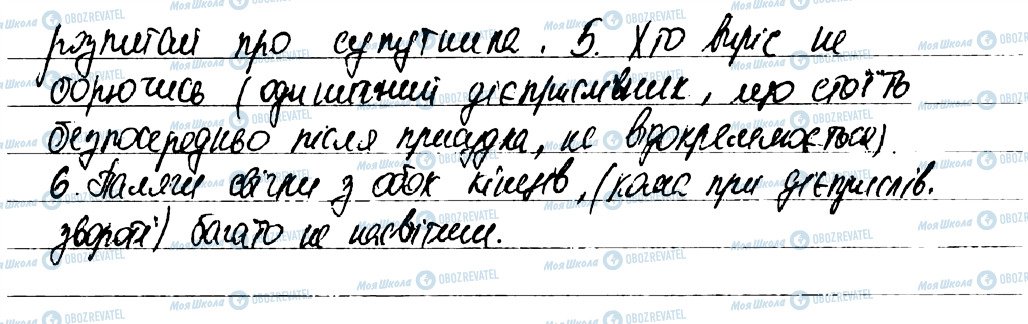 розпитай про супутника. 5. Хто виріс не
борючись (одиничний дієприслівник, що стоїть
безпосередньо після присудка, не відокремлюється).
6. Паляги свічки з обох кінців, (кома при дієприслів.
звороті) багато не насвітиш.